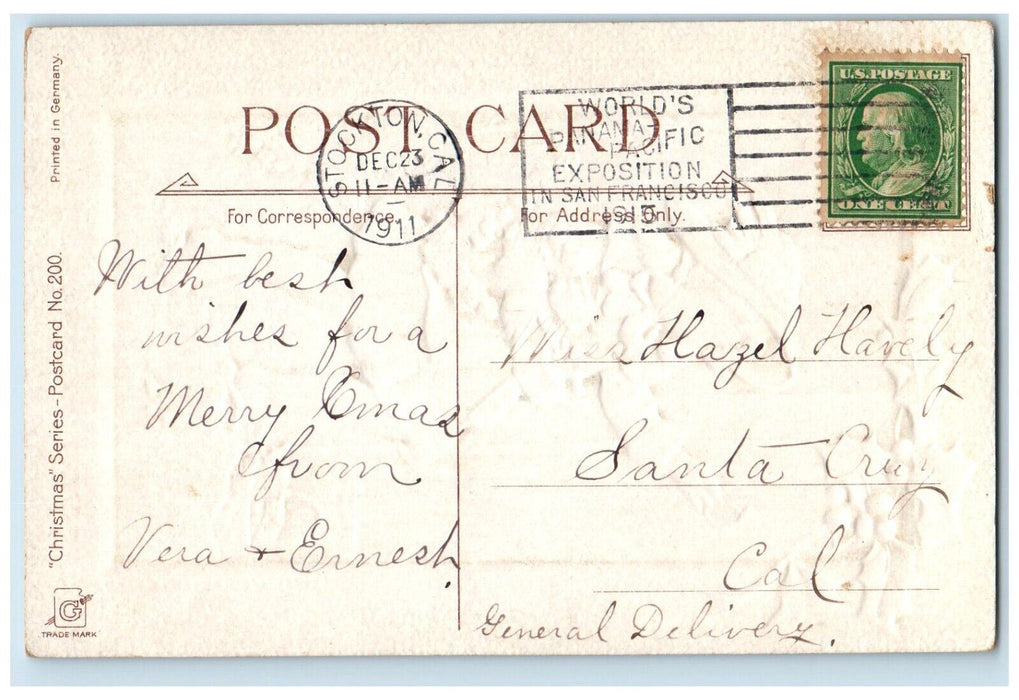 Printed in Germany.
"Christmas" Series - Postcard No. 200.
G
TRADE MARK
POST CARD
STOCKTON, CAL
DEC 23
11-AM
1911
WORLD'S
PANAMA-
PACIFIC
EXPOSITION
IN SAN FRANCISCO
1915
U.S. POSTAGE
ONE CENT
For Correspondence.
For Address Only.
With best
wishes for a
Merry Xmas
from
Vera + Ernest.
Miss Hazel Havely
Santa Cruz
Cal
General Delivery.